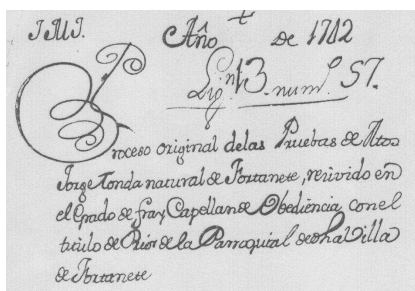 J M J. Año de 1702
Lig.n 13. num.o 57.
Proceso original delas Pruebas de Mtos
Jorge Tonda natural de Fortanete, rerivido en
el Grado de fray Capellan de Obediencia con el
titulo de Prior de la Parroquial de dha Villa
de Fortanete